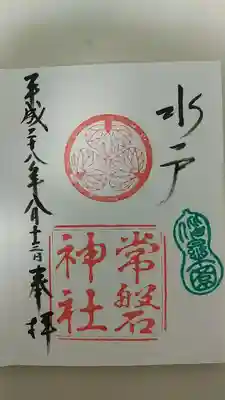 水戸
常磐
神社
偕楽園
平成二十八年八月十三日奉拝